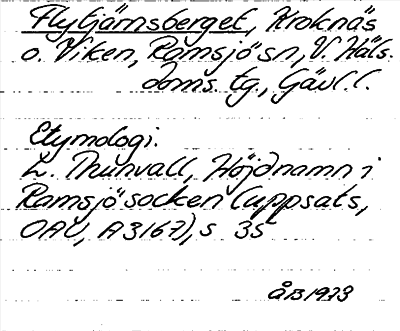 Flytjärnsberget, Kroknäs
o. Viken, Ramsjö sn, V. Häls.
doms. tg., Gävl. l.
Etymologi.
L. Thunvall, Höjdnamn i
Ramsjö socken (uppsats,
OAU, A3167), s 35
ÅB 1973